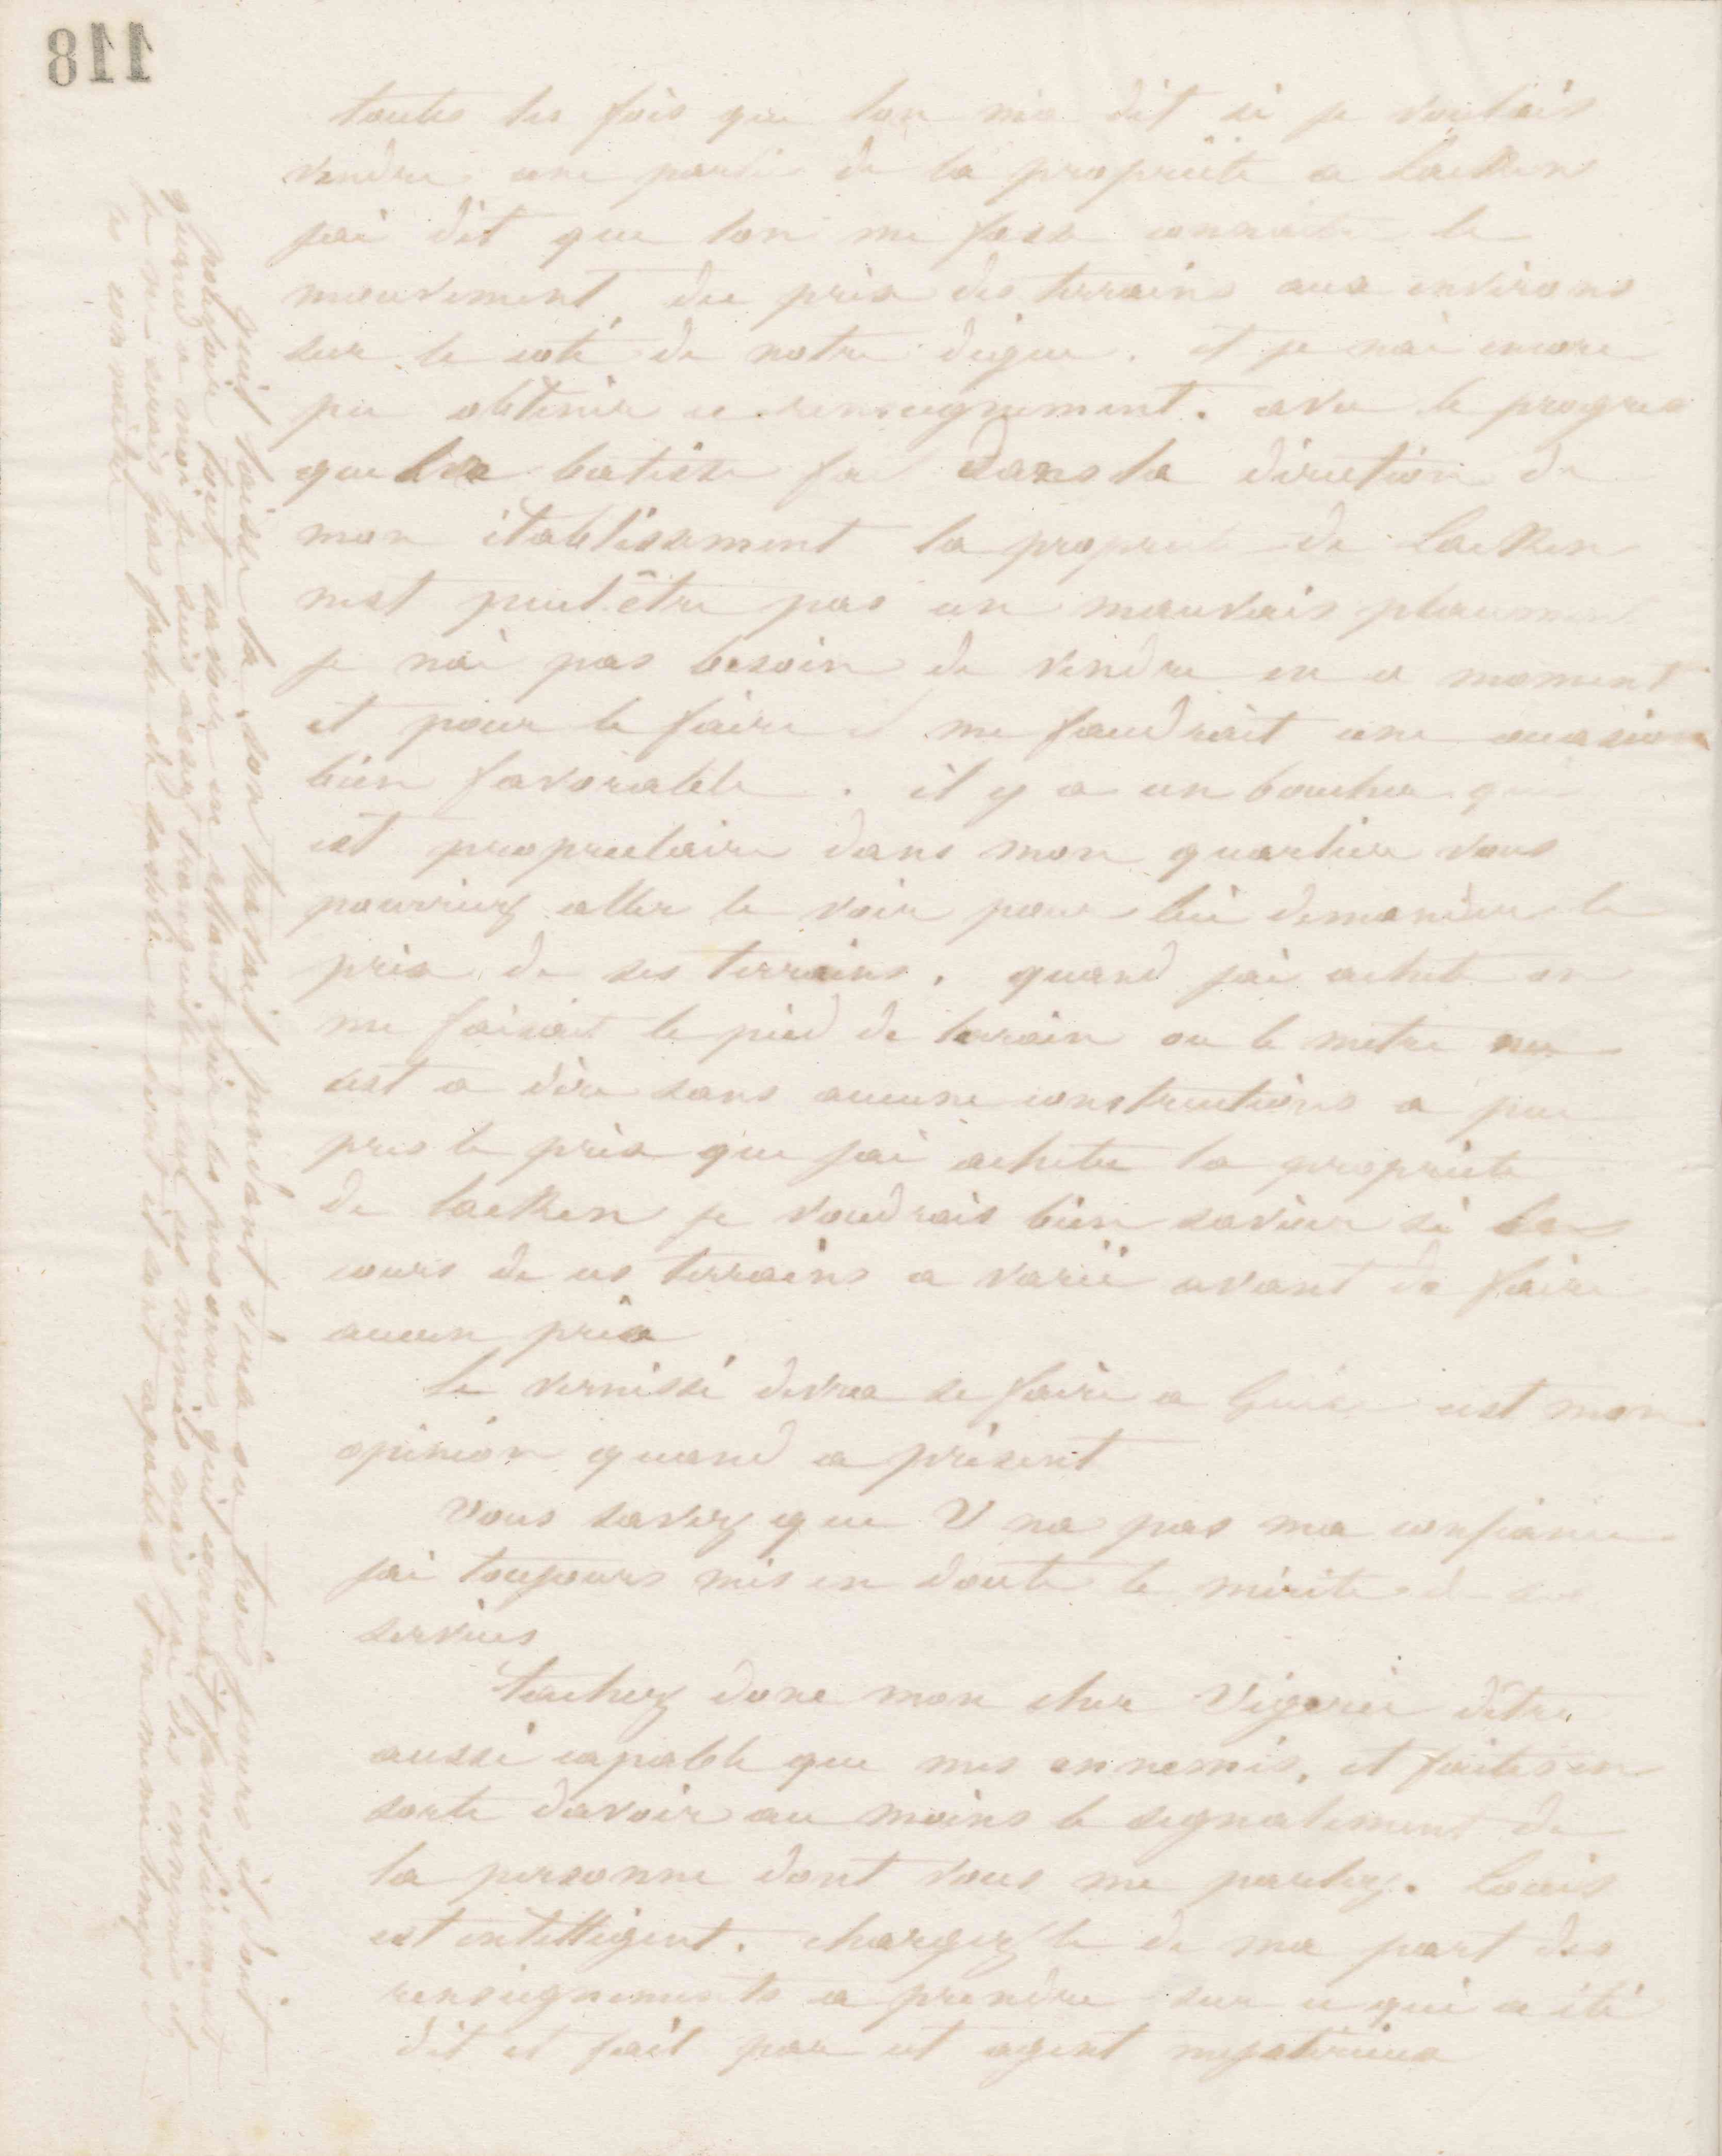 118
toutes les fois que lon ma dit si je voulais
vendre une partie de la propriète a Laeken
jai dit que lon me fasse connaitre le
mouvement du prix des terrains aux environs
sur le coté de notre digue. et je nai encore
pu obtenir ce renseignement. avec le progres
que les batisse fai dans la direction de
mon établissement la propriete de Laeken
nest peut être pas un mauvais placement
je nai pas besoin de vendre en ce moment
et pour le faire il me faudrait une occasion
bien favorable. il y a un boucher qui
est proprietaire dans mon quartier vous
pourriez aller le voir pour lui demander le
prix de ses terrains. quand jai acheté on
me faisait le pied de terrain ou le metre nu
cest a dire sans aucune constructions a peu
pres le prix que jai acheter la propriete
de laeken je voudrais bien savoir si les
cours de ces terrains a varié avant de faire
aucun prix
le vernissé devra se faire a Guise cest mon
opinion quand a présent
Vous savez que V na pas ma confiance
jai toujours mis en doute le mérite de ses
services
tachez donc mon cher Vigerie dêtre
aussi capable que mes ennemis, et faites en
sorte davoir au moins le segnalement de
la personne dont vous me parlez. Louis
est intelligent. chargez le de ma part des
renseignements a prendre sur ce qui a été
dit et fait par cet agent mysterieux
quil laisse la son travail pendant deux ou trois jours il doit
pouvoir tout savoir en allant voir les personnes quil connait
quand a moi je suis assez tranquille sur ces menées mais jai des ennemis et
je ne serais pas faché de savoir ce dont il sont capables et en meme temps
les connaitre